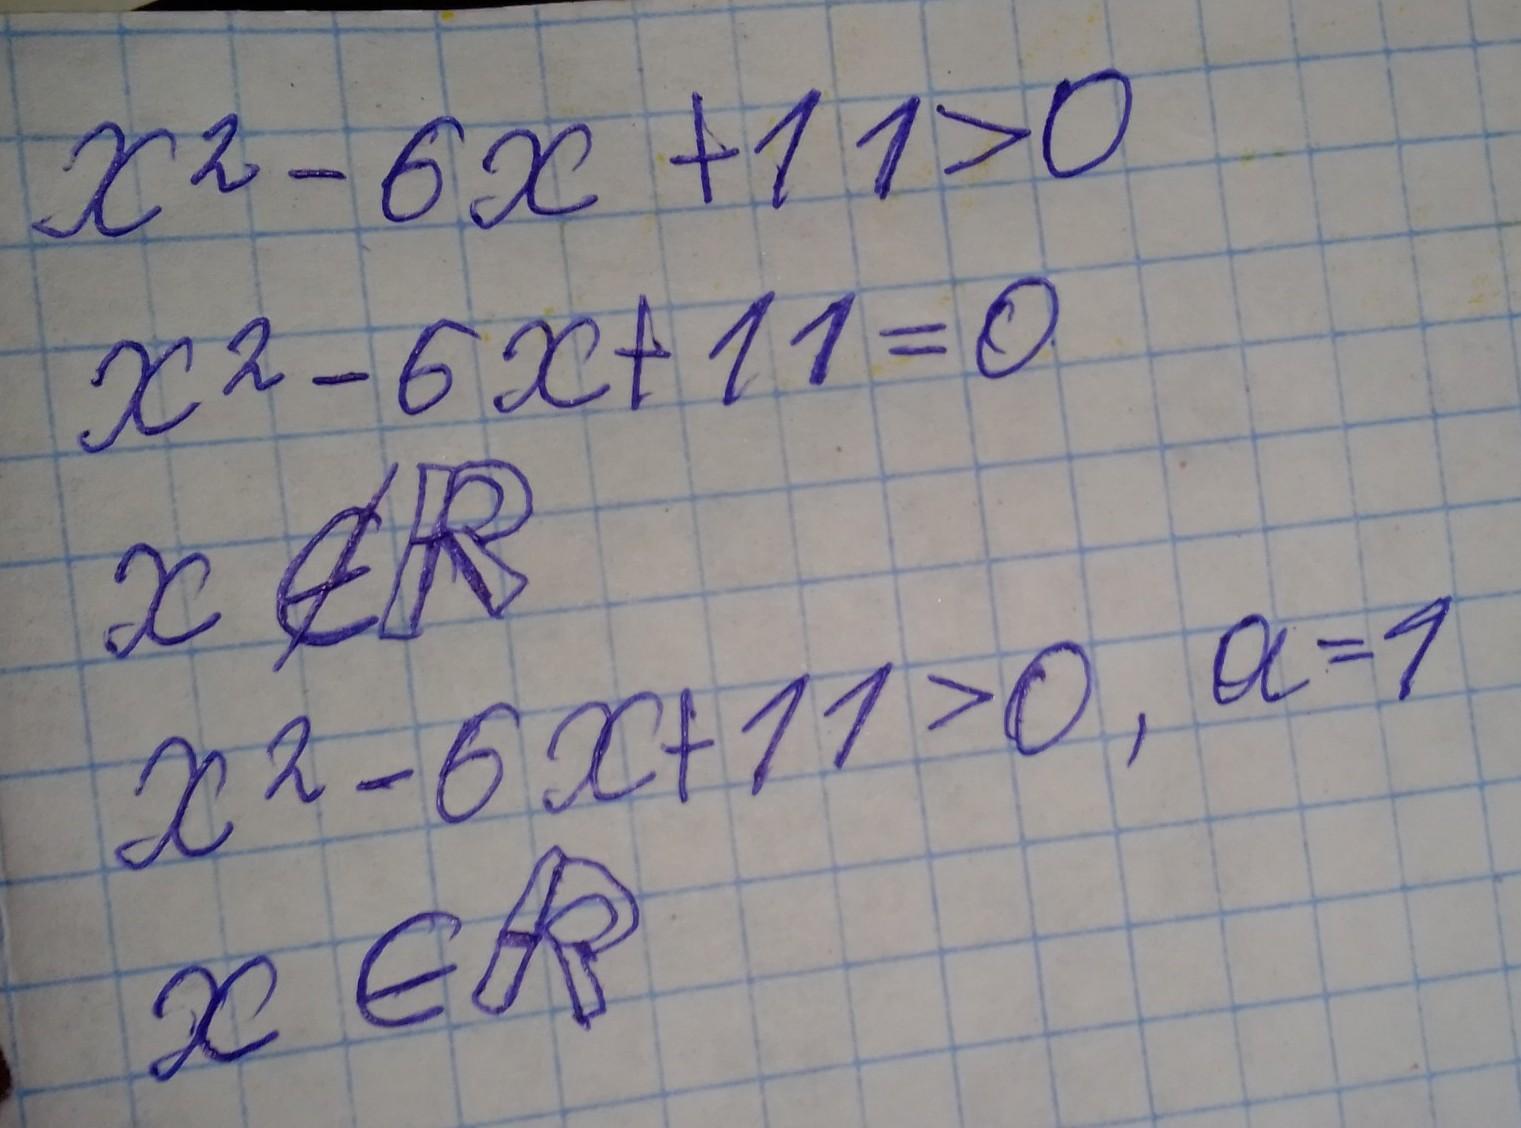 x² - 6x + 11 > 0
x² - 6x + 11 = 0
x ∉ ℝ
x² - 6x + 11 > 0, a = 1
x ∈ ℝ